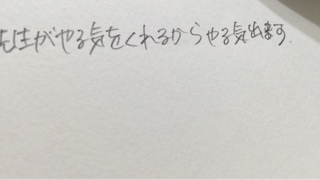 先生がやる気をくれるからやる気出ます.